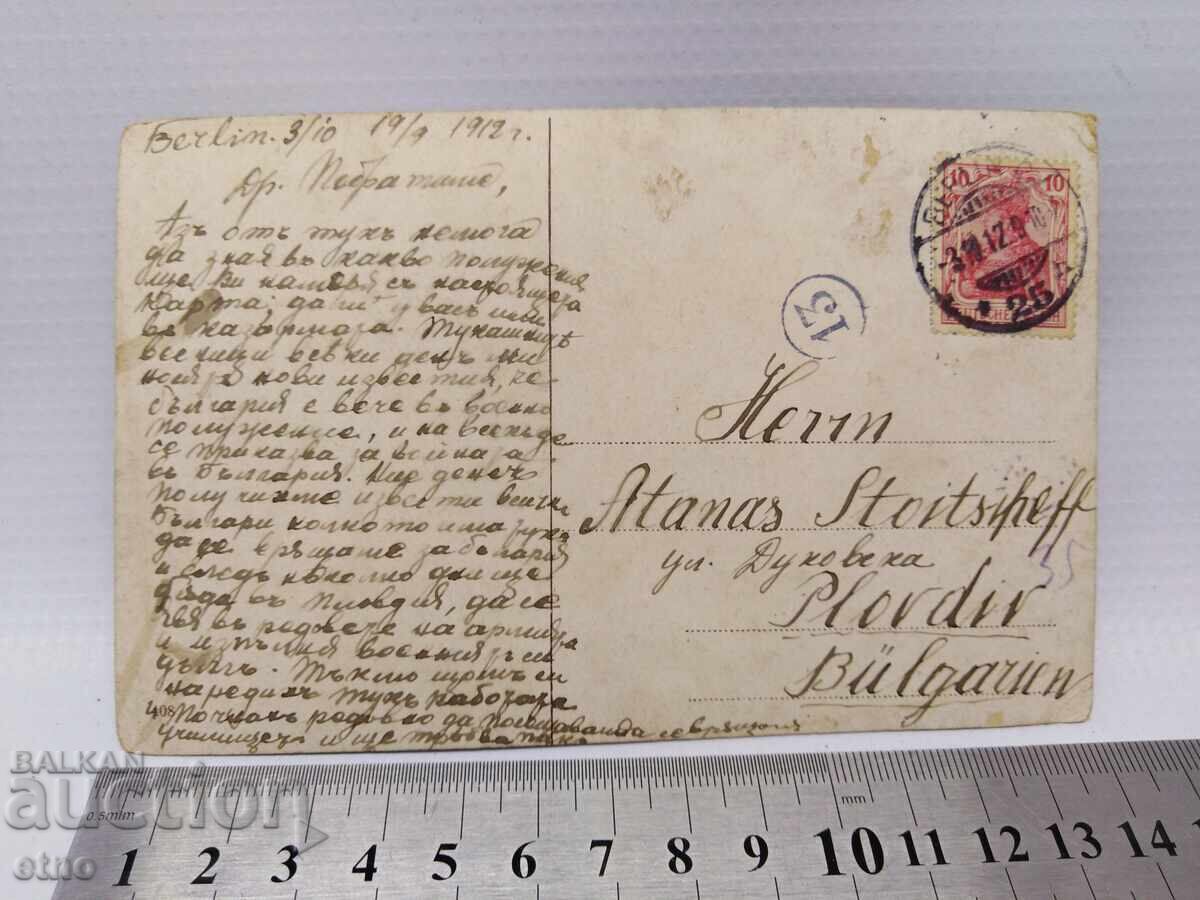 Berlin. 3/10 19/9 1912 г.
Др. Побратиме,
Азъ отъ тукъ немога
да зная въ какво положение
ще Ви намеря съ настоящата
карта; дали у васъ или
въ казармата. Тукашнитѣ
весници всѣки день
нови известия, че
България е вече въ военно
положение, и на всекъде
се приказва за война
въ България. Ние денесъ
получихме извести всички
Българи колкото има тукъ
да се връщаме за България
и следъ неколко дни ще
дода въ Пловдивъ, да се
явя въ редовете на армията
и изпълня военния си
дългъ. Тъкмо що си
наредихъ тукъ работата
Почнахъ редовно да посещавамъ
училището и ще трѣбва да се връщамъ
408
10 10
BERLIN
-3.10.12.9-10
25
15
Herrn
Atanas Stoitscheff
ул. Духовска
35
Plovdiv
Bülgarien
BALKAN
auction
etno
0.5mm mm
1 2 3 4 5 6 7 8 9 10 11 12 13 14